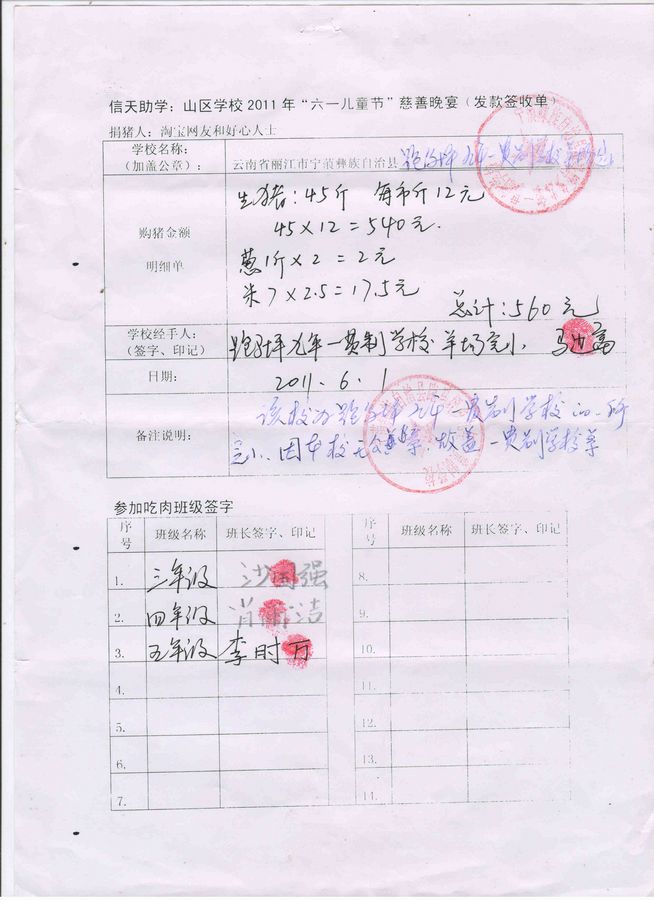 信天助学：山区学校2011年“六一儿童节”慈善晚宴（发款签收单）
捐猪人：淘宝网友和好心人士
学校名称：
（加盖公章）：
云南省丽江市宁蒗彝族自治县跑马坪九年一贯制学校羊场完小
购猪金额
明细单
生猪：45斤 每市斤12元
45×12=540元.
葱1斤×2=2元
米7×2.5=17.5元
总计：560元
学校经手人：
（签字、印记）
跑马坪九年一贯制学校羊场完小 马
日期：
2011.6.1
备注说明：
该校为跑马坪九年一贯制学校的一所
完小、因本校无公章，故盖一贯制学校章
参加吃肉班级签字
序号 班级名称 班长签字、印记 序号 班级名称 班长签字、印记
1. 三年级 沙国强 8.
2. 四年级 肖 洁 9.
3. 五年级 李时万 10.
4. 11.
5. 12.
6. 13.
7. 14.